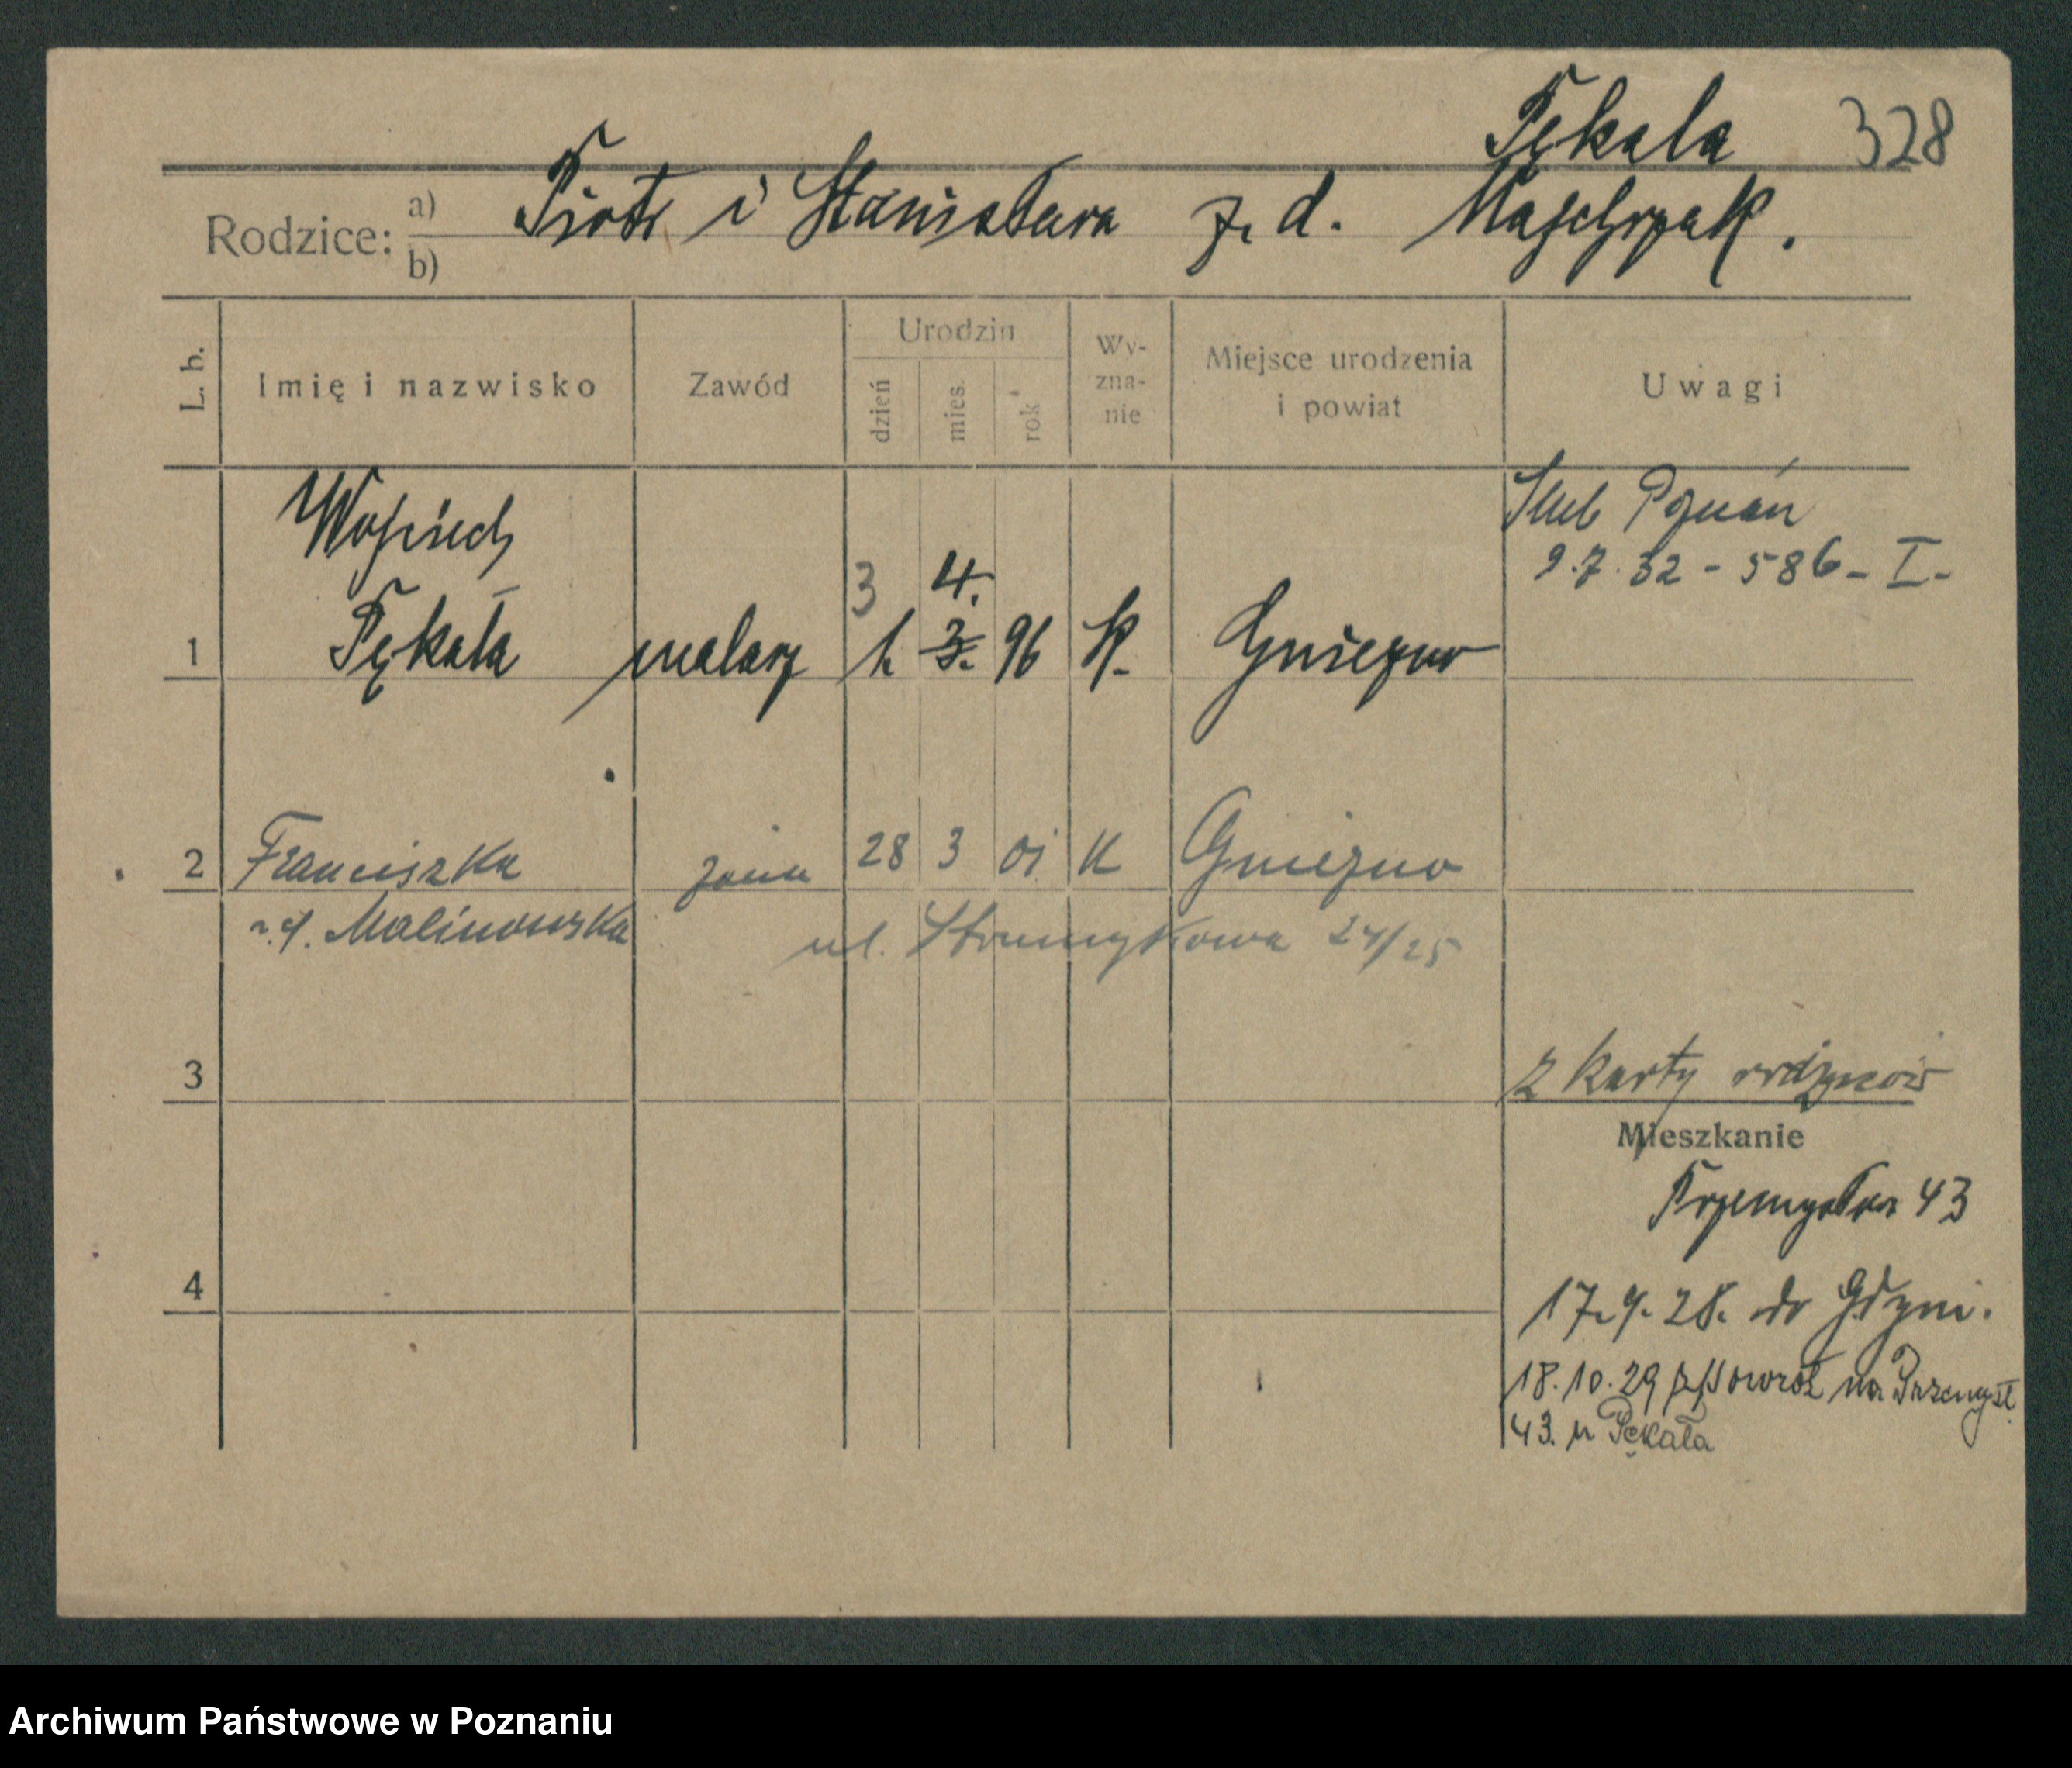 Pękala 328
Rodzice: a) b) Piotr i Stanisława z. d. Majchrzak.
L. b. Imię i nazwisko Zawód Urodzin dzień mies. rok Wy-zna-nie Miejsce urodzenia i powiat Uwagi
Ślub Poznań
9.7.32 - 586 - I -
Wojciech
3 4.
1 Pękała malarz 1. 3. 96 K. Gniezno
2 Franciszka żona 28 3 01 K Gniezno
z. d. Malinowska ul. Strumykowa 24/25
3 z karty rodziców
Mieszkanie
Przemysława 43
4 17.9.28. do Gdyni.
18.10.29 z powrot na Przemysł.
43. u Pękała
Archiwum Państwowe w Poznaniu